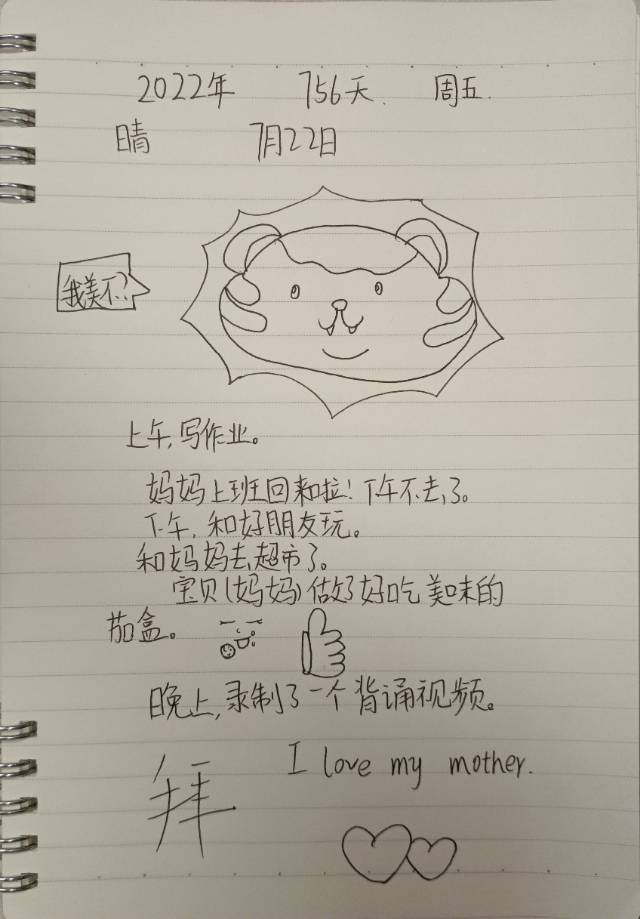 2022年 756天. 周五.
晴 7月22日
我美不?
上午,写作业。
妈妈上班回来啦!下午不去了。
下午,和好朋友玩。
和妈妈去超市了。
宝贝(妈妈)做了好吃美味的
茄盒。
晚上,录制了一个背诵视频。
I love my mother.
拜